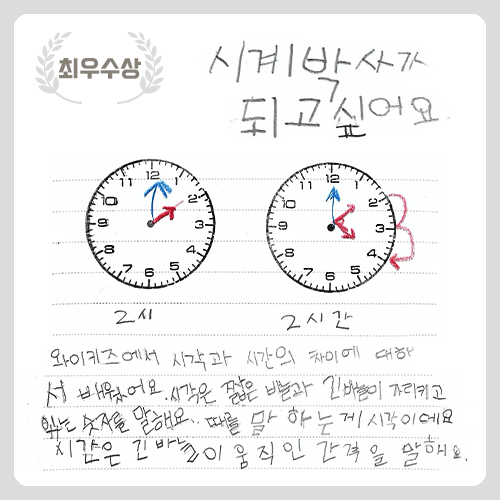 최우수상
시계박사가
되고싶어요
12 1 2 3 4 5 6 7 8 9 10 11
12 1 2 3 4 5 6 7 8 9 10 11
2시
2시간
와이키즈에서 시각과 시간의 차이에 대해
서 배웠어요. 시각은 짧은 바늘과 긴바늘이 가리키고
있는 숫자를 말해요. 때를 말 하는게 시각이에요
시간은 긴 바늘이 움직인 간격을 말해요.